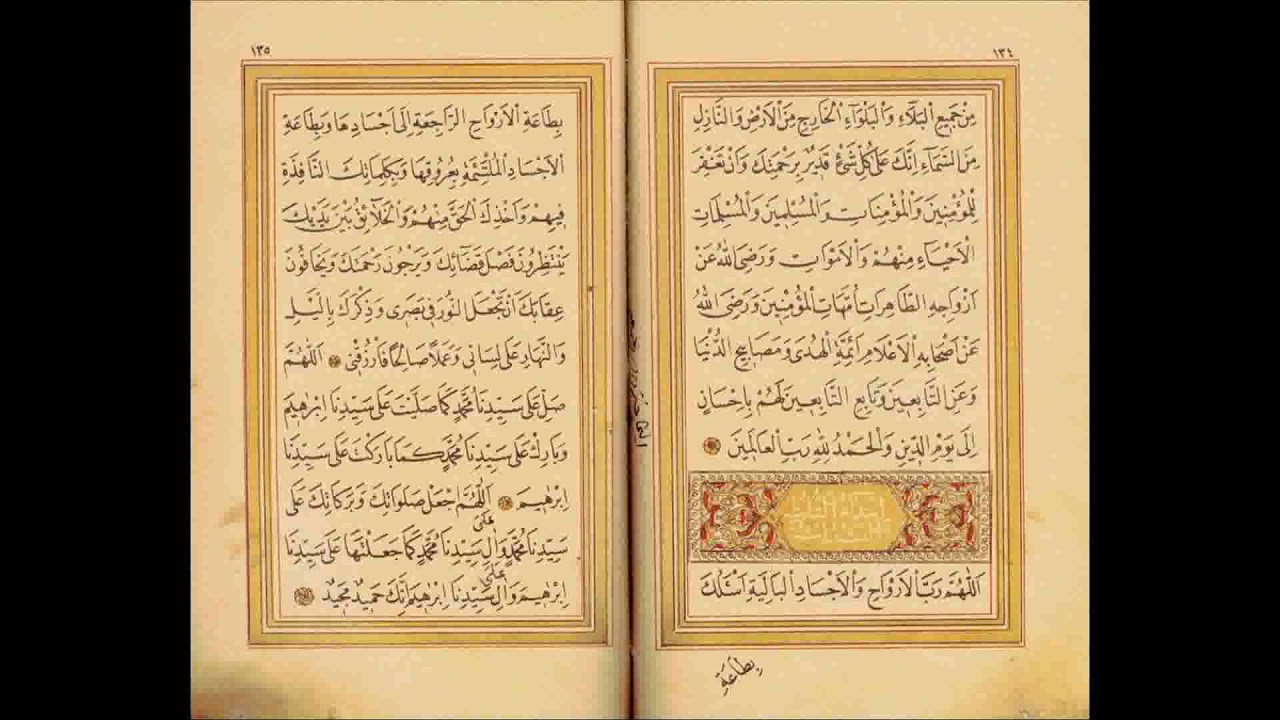 ١٣٤
مِنْ جَمِيعِ الْبَلَاءِ وَالْبَلْوَاءِ الْخَارِجِ مِنَ الْاَرْضِ وَالنَّازِلِ
مِنَ السَّمَاءِ اِنَّكَ عَلَى كُلِّ شَيْءٍ قَدِيرٌ بِرَحْمَتِكَ وَاَنْ تَغْفِرَ
لِلْمُؤْمِنِينَ وَالْمُؤْمِنَاتِ وَالْمُسْلِمِينَ وَالْمُسْلِمَاتِ
الْاَحْيَاءِ مِنْهُمْ وَالْاَمْوَاتِ وَرَضِيَ اللهُ عَنْ
اَزْوَاجِهِ الطَّاهِرَاتِ اُمَّهَاتِ الْمُؤْمِنِينَ وَرَضِيَ اللهُ
عَنْ اَصْحَابِهِ الْاَعْلَامِ اَئِمَّةِ الْهُدَى وَمَصَابِيحِ الدُّنْيَا
وَعَنِ التَّابِعِينَ وَتَابِعِ التَّابِعِينَ لَهُمْ بِاِحْسَانٍ
اِلَى يَوْمِ الدِّينِ وَالْحَمْدُ لِلّٰهِ رَبِّ الْعَالَمِينَ
اَللّٰهُمَّ رَبَّ الْاَرْوَاحِ وَالْاَجْسَادِ الْبَالِيَةِ اَسْئَلُكَ
بِطَاعَةِ
١٣٥
بِطَاعَةِ الْاَرْوَاحِ الرَّاجِعَةِ اِلَى اَجْسَادِهَا وَبِطَاعَةِ
الْاَجْسَادِ الْمُلْتَئِمَةِ بِعُرُوقِهَا وَبِكَلِمَاتِكَ النَّافِذَةِ
فِيهِمْ وَاَخْذِكَ الْحَقَّ مِنْهُمْ وَالْخَلَائِقُ بَيْنَ يَدَيْكَ
يَنْتَظِرُونَ فَصْلَ قَضَائِكَ وَيَرْجُونَ رَحْمَتَكَ وَيَخَافُونَ
عِقَابَكَ اَنْ تَجْعَلَ النُّورَ فِي بَصَرِي وَذِكْرَكَ بِاللَّيْلِ
وَالنَّهَارِ عَلَى لِسَانِي وَعَمَلًا صَالِحًا فَارْزُقْنِي اَللّٰهُمَّ
صَلِّ عَلَى سَيِّدِنَا مُحَمَّدٍ كَمَا صَلَّيْتَ عَلَى سَيِّدِنَا اِبْرٰهِيمَ
وَبَارِكْ عَلَى سَيِّدِنَا مُحَمَّدٍ كَمَا بَارَكْتَ عَلَى سَيِّدِنَا
اِبْرٰهِيمَ اَللّٰهُمَّ اجْعَلْ صَلَوَاتِكَ وَبَرَكَاتِكَ عَلَى
سَيِّدِنَا مُحَمَّدٍ وَعَلَى اٰلِ سَيِّدِنَا مُحَمَّدٍ كَمَا جَعَلْتَهَا عَلَى سَيِّدِنَا
اِبْرٰهِيمَ وَعَلَى اٰلِ سَيِّدِنَا اِبْرٰهِيمَ اِنَّكَ حَمِيدٌ مَجِيدٌ